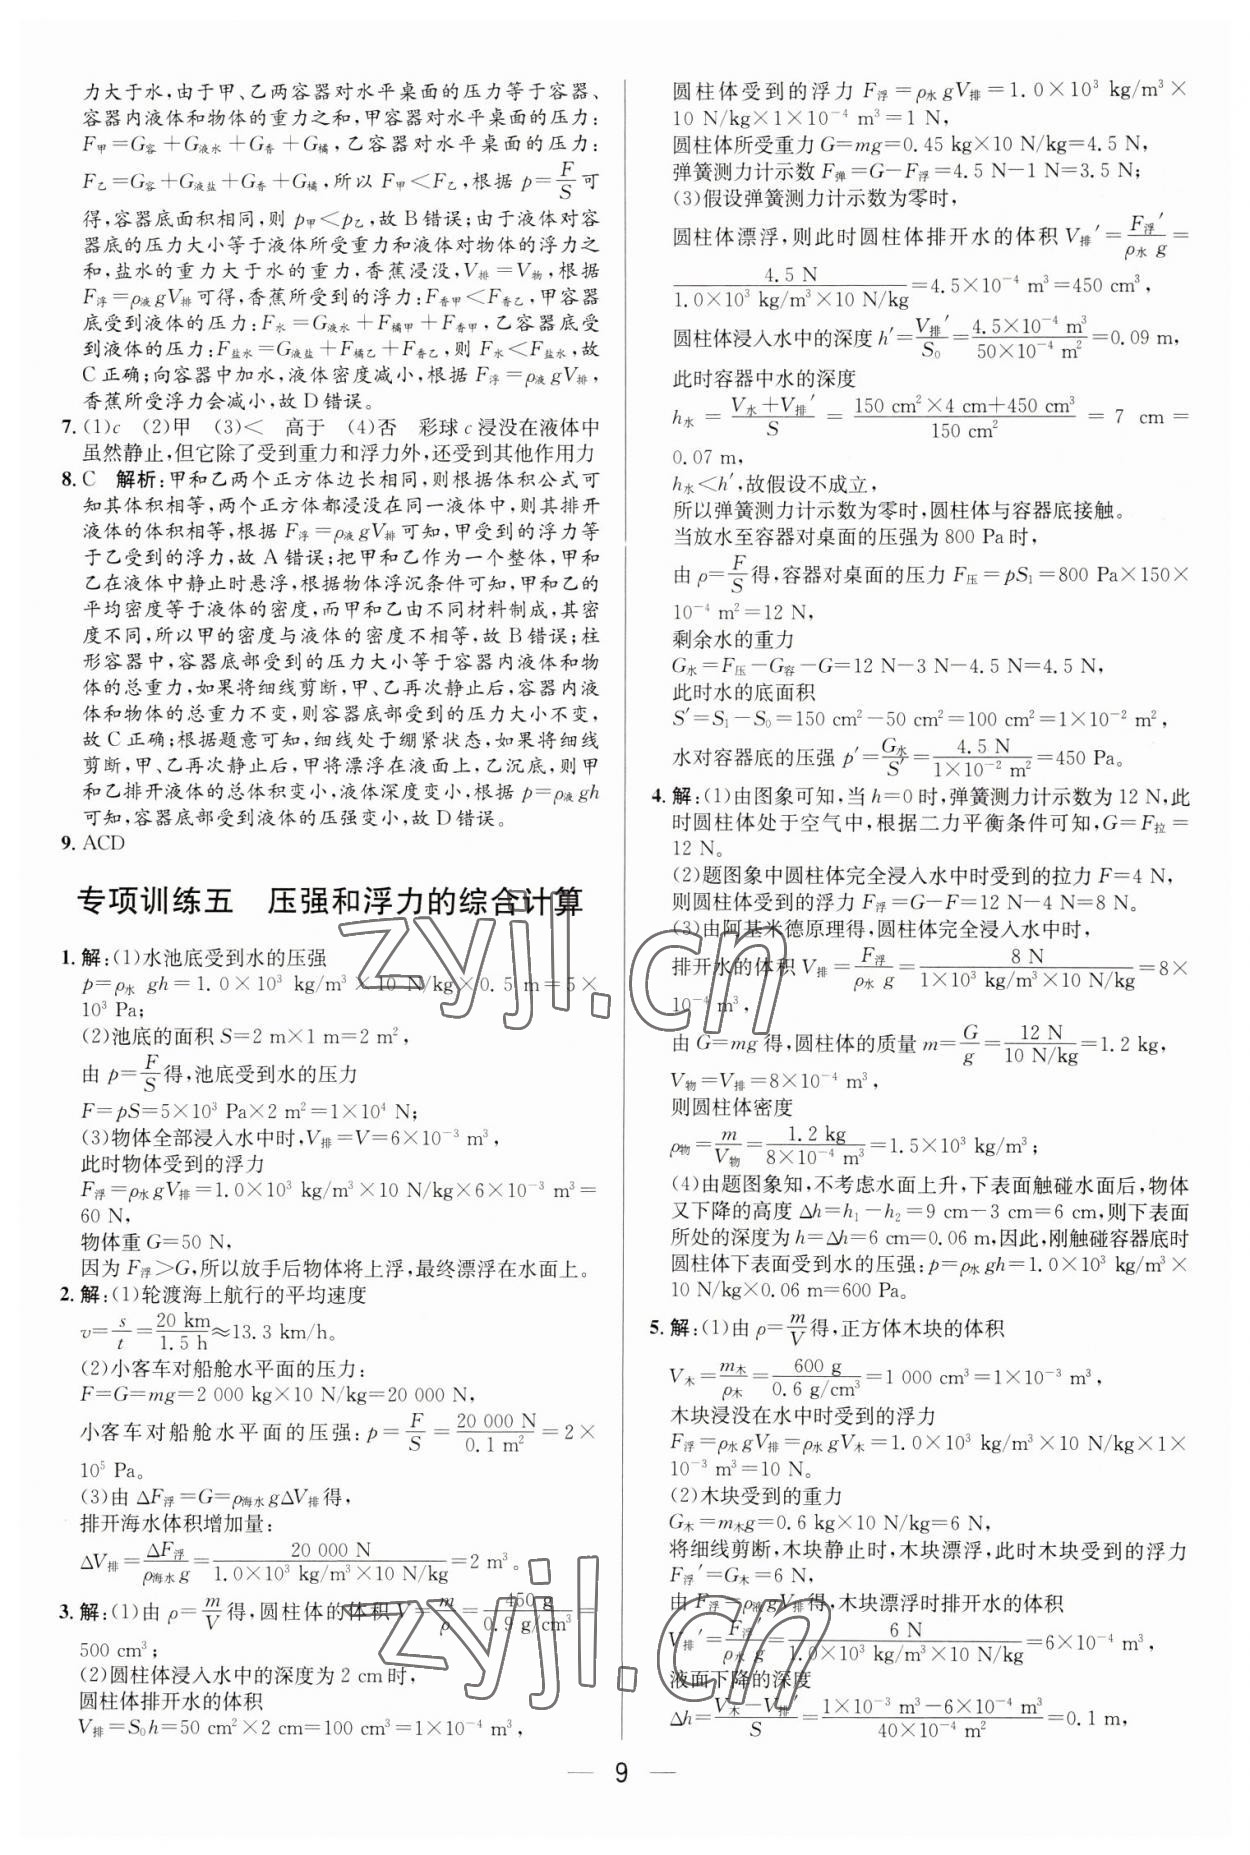 力大于水,由于甲、乙两容器对水平桌面的压力等于容器、
容器内液体和物体的重力之和,甲容器对水平桌面的压力:
F甲=G容+G液水+G香+G橘,乙容器对水平桌面的压力:
F乙=G容+G液盐+G香+G橘,所以 F甲<F乙,根据 p=F/S可
得,容器底面积相同,则 p甲<p乙,故 B 错误;由于液体对容
器底的压力大小等于液体所受重力和液体对物体的浮力之
和,盐水的重力大于水的重力,香蕉浸没,V排=V物,根据
F浮=ρ液gV排可得,香蕉所受到的浮力:F香甲<F香乙,甲容器
底受到液体的压力:F水=G液水+F橘甲+F香甲,乙容器底受
到液体的压力:F盐水=G液盐+F橘乙+F香乙,则 F水<F盐水,故
C 正确;向容器中加水,液体密度减小,根据 F浮=ρ液gV排,
香蕉所受浮力会减小,故 D 错误。
7. (1)c (2)甲 (3)< 高于 (4)否 彩球 c 浸没在液体中
虽然静止,但它除了受到重力和浮力外,还受到其他作用力
8. C 解析:甲和乙两个正方体边长相同,则根据体积公式可
知其体积相等,两个正方体都浸没在同一液体中,则其排开
液体的体积相等,根据 F浮=ρ液gV排可知,甲受到的浮力等
于乙受到的浮力,故 A 错误;把甲和乙作为一个整体,甲和
乙在液体中静止时悬浮,根据物体浮沉条件可知,甲和乙的
平均密度等于液体的密度,而甲和乙由不同材料制成,其密
度不同,所以甲的密度与液体的密度不相等,故 B 错误;柱
形容器中,容器底部受到的压力大小等于容器内液体和物
体的总重力,如果将细线剪断,甲、乙再次静止后,容器内液
体和物体的总重力不变,则容器底部受到的压力大小不变,
故 C 正确;根据题意可知,细线处于绷紧状态,如果将细线
剪断,甲、乙再次静止后,甲将漂浮在液面上,乙沉底,则甲
和乙排开液体的总体积变小,液体深度变小,根据 p=ρ液gh
可知,容器底部受到液体的压强变小,故 D 错误。
9. ACD
专项训练五 压强和浮力的综合计算
1. 解:(1)水池底受到水的压强
p=ρ水 gh=1.0×10³ kg/m³×10 N/kg×0.5 m=5×
10³ Pa;
(2)池底的面积 S=2 m×1 m=2 m²,
由 p=F/S得,池底受到水的压力
F=pS=5×10³ Pa×2 m²=1×10⁴ N;
(3)物体全部浸入水中时,V排=V=6×10⁻³ m³,
此时物体受到的浮力
F浮=ρ水gV排=1.0×10³ kg/m³×10 N/kg×6×10⁻³ m³=
60 N,
物体重 G=50 N,
因为 F浮>G,所以放手后物体将上浮,最终漂浮在水面上。
2. 解:(1)轮渡海上航行的平均速度
v=s/t=20 km/1.5 h≈13.3 km/h。
(2)小客车对船舱水平面的压力:
F=G=mg=2 000 kg×10 N/kg=20 000 N,
小客车对船舱水平面的压强:p=F/S=20 000 N/0.1 m²=2×
10⁵ Pa。
(3)由 ΔF浮=G=ρ海水gΔV排得,
排开海水体积增加量:
ΔV排=ΔF浮/ρ海水g=20 000 N/1.0×10³ kg/m³×10 N/kg=2 m³。
3. 解:(1)由 ρ=m/V得,圆柱体的体积 V=m/ρ=450 g/0.9 g/cm³=
500 cm³;
(2)圆柱体浸入水中的深度为 2 cm时,
圆柱体排开水的体积
V排=S₀h=50 cm²×2 cm=100 cm³=1×10⁻⁴ m³,
圆柱体受到的浮力 F浮=ρ水gV排=1.0×10³ kg/m³×
10 N/kg×1×10⁻⁴ m³=1 N,
圆柱体所受重力 G=mg=0.45 kg×10 N/kg=4.5 N,
弹簧测力计示数 F弹=G-F浮=4.5 N-1 N=3.5 N;
(3)假设弹簧测力计示数为零时,
圆柱体漂浮,则此时圆柱体排开水的体积 V排′=F浮′/ρ水 g=
4.5 N/1.0×10³ kg/m³×10 N/kg=4.5×10⁻⁴ m³=450 cm³,
圆柱体浸入水中的深度 h′=V排′/S₀=4.5×10⁻⁴ m³/50×10⁻⁴ m²=0.09 m,
此时容器中水的深度
h水=V水+V排′/S=150 cm²×4 cm+450 cm³/150 cm²=7 cm=
0.07 m,
h水<h′,故假设不成立,
所以弹簧测力计示数为零时,圆柱体与容器底接触。
当放水至容器对桌面的压强为 800 Pa时,
由 p=F/S得,容器对桌面的压力 F压=pS₁=800 Pa×150×
10⁻⁴ m²=12 N,
剩余水的重力
G水=F压-G容-G=12 N-3 N-4.5 N=4.5 N,
此时水的底面积
S′=S₁-S₀=150 cm²-50 cm²=100 cm²=1×10⁻² m²,
水对容器底的压强 p′=G水/S′=4.5 N/1×10⁻² m²=450 Pa。
4. 解:(1)由图象可知,当 h=0 时,弹簧测力计示数为 12 N,此
时圆柱体处于空气中,根据二力平衡条件可知,G=F拉=
12 N。
(2)题图象中圆柱体完全浸入水中时受到的拉力 F=4 N,
则圆柱体受到的浮力 F浮=G-F=12 N-4 N=8 N。
(3)由阿基米德原理得,圆柱体完全浸入水中时,
排开水的体积 V排=F浮/ρ水 g=8 N/1×10³ kg/m³×10 N/kg=8×
10⁻⁴ m³,
由 G=mg 得,圆柱体的质量 m=G/g=12 N/10 N/kg=1.2 kg,
V物=V排=8×10⁻⁴ m³,
则圆柱体密度
ρ物=m/V物=1.2 kg/8×10⁻⁴ m³=1.5×10³ kg/m³;
(4)由题图象知,不考虑水面上升,下表面触碰水面后,物体
又下降的高度 Δh=h₁-h₂=9 cm-3 cm=6 cm,则下表面
所处的深度为 h=Δh=6 cm=0.06 m,因此,刚触碰容器底时
圆柱体下表面受到水的压强:p=ρ水gh=1.0×10³ kg/m³×
10 N/kg×0.06 m=600 Pa。
5. 解:(1)由 ρ=m/V得,正方体木块的体积
V木=m木/ρ木=600 g/0.6 g/cm³=1 000 cm³=1×10⁻³ m³,
木块浸没在水中时受到的浮力
F浮=ρ水gV排=ρ水gV木=1.0×10³ kg/m³×10 N/kg×1×
10⁻³ m³=10 N。
(2)木块受到的重力
G木=m木g=0.6 kg×10 N/kg=6 N,
将细线剪断,木块静止时,木块漂浮,此时木块受到的浮力
F浮′=G木=6 N,
由 F浮=ρ液gV排得,木块漂浮时排开水的体积
V排′=F浮′/ρ水 g=6 N/1.0×10³ kg/m³×10 N/kg=6×10⁻⁴ m³,
液面下降的深度
Δh=V木-V排′/S=1×10⁻³ m³-6×10⁻⁴ m³/40×10⁻⁴ m²=0.1 m,
— 9 —
zyjl.cn
zyjl.cn